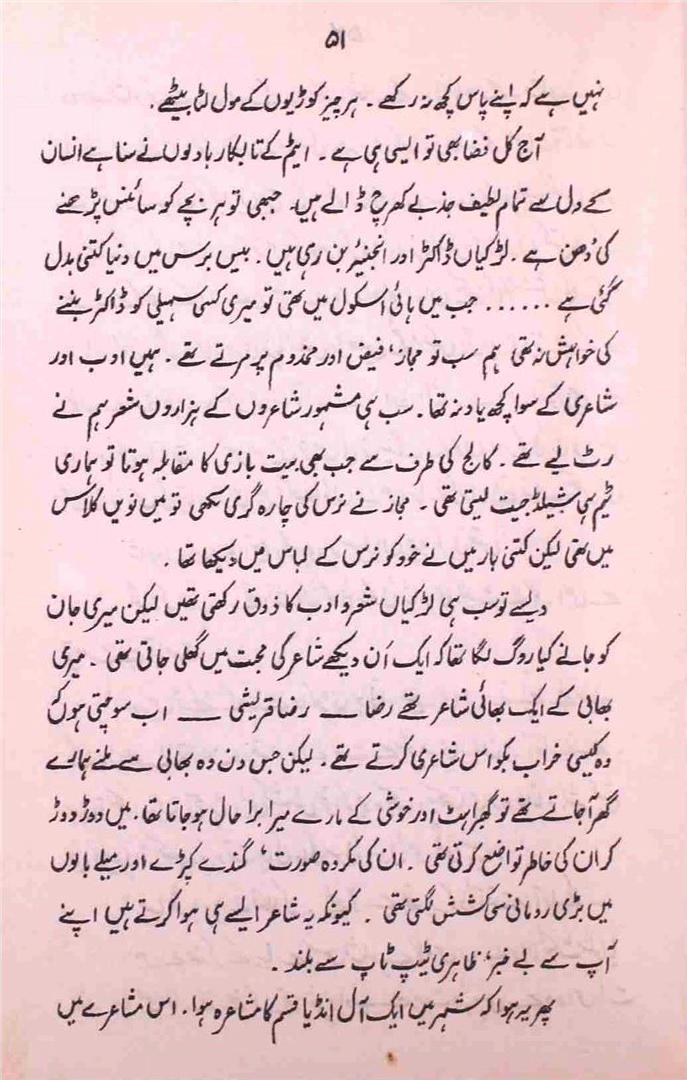 ۵۱
نہیں ہے کہ اپنے پاس کچھ نہ رکھے ۔ ہر چیز کوڑیوں کے مول لٹا بیٹھے ۔
آج کل فضا بھی تو ایسی ہی ہے ۔ ایٹم کے تابکار بادلوں نے سنا ہے انسان
کے دل سے تمام لطیف جذبے کھرچ ڈالے ہیں۔ جبھی تو ہر بچے کو سائنس پڑھنے
کی دُھن ہے ۔ لڑکیاں ڈاکٹر اور انجنیئر بن رہی ہیں ۔ بیس برس میں دنیا کتنی بدل
گئی ہے ...... جب میں ہائی اسکول میں تھی تو میری کسی سہیلی کو ڈاکٹر بننے
کی خواہش نہ تھی ہم سب تو مجاز، فیض اور مخدوم پر مرتے تھے ۔ ہمیں ادب اور
شاعری کے سوا کچھ یاد نہ تھا ۔ سب ہی مشہور شاعروں کے ہزاروں شعر ہم نے
رٹ لیے تھے ۔ کالج کی طرف سے جب بھی بیت بازی کا مقابلہ ہوتا تو ہماری
ٹیم ہی شیلڈ جیت لیتی تھی ۔ مجاز نے نرس کی چارہ گری لکھی تو میں نویں کلاس
میں تھی لیکن کتنی بار میں نے خود کو نرس کے لباس میں دیکھا تھا ۔
ویسے تو سب ہی لڑکیاں شعر و ادب کا ذوق رکھتی تھیں لیکن میری جان
کو جانے کیا روگ لگا تھا کہ ایک اَن دیکھے شاعر کی محبت میں گھلی جاتی تھی ۔ میری
بھابی کے ایک بھائی شاعر تھے رضا ـــ رضا قریشی ـــ اب سوچتی ہوں کہ
وہ کیسی خراب بکواس شاعری کرتے تھے ۔ لیکن جس دن وہ بھابی سے ملنے ہمارے
گھر آجاتے تھے تو گھبراہٹ اور خوشی کے مارے میرا برا حال ہو جاتا تھا ۔ میں دوڑ دوڑ
کر ان کی خاطر تواضع کرتی تھی ۔ ان کی مکروہ صورت، گندے کپڑے اور میلے بالوں
میں بڑی رومانی سی کشش لگتی تھی ۔ کیونکہ یہ شاعر ایسے ہی ہوا کرتے ہیں اپنے
آپ سے بے خبر، ظاہری ٹیپ ٹاپ سے بلند ۔
پھر یہ ہوا کہ شہر میں ایک آل انڈیا قسم کا مشاعرہ ہوا ۔ اس مشاعرے میں